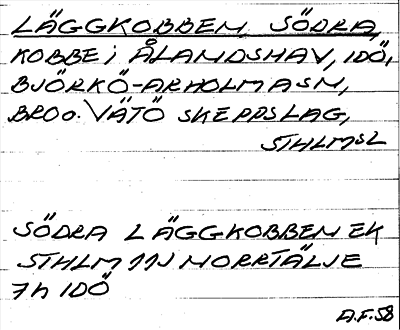 LÄGGKOBBEN, SÖDRA,
KOBBE i ÅLANDSHAV, IDÖ,
BJÖRKÖ-ARHOLMA SN,
BRO o. VÄTÖ SKEPPSLAG,
STHLMSL
SÖDRA LÄGGKOBBEN EK
STHLM 11J NORRTÄLJE
7h IDÖ
A.F. 58